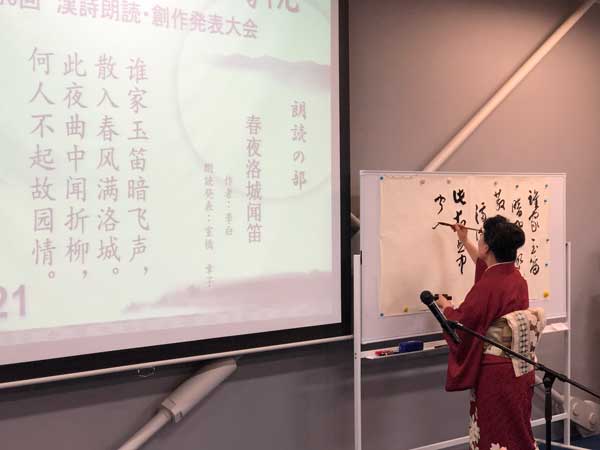 回 漢詩朗読・創作発表大会
朗読の部
春夜洛城闻笛
作者：李白
朗読発表：室橋
谁家玉笛暗飞声，
散入春风满洛城。
此夜曲中闻折柳，
何人不起故园情。
21
誰家玉笛
暗
散
此夜曲中